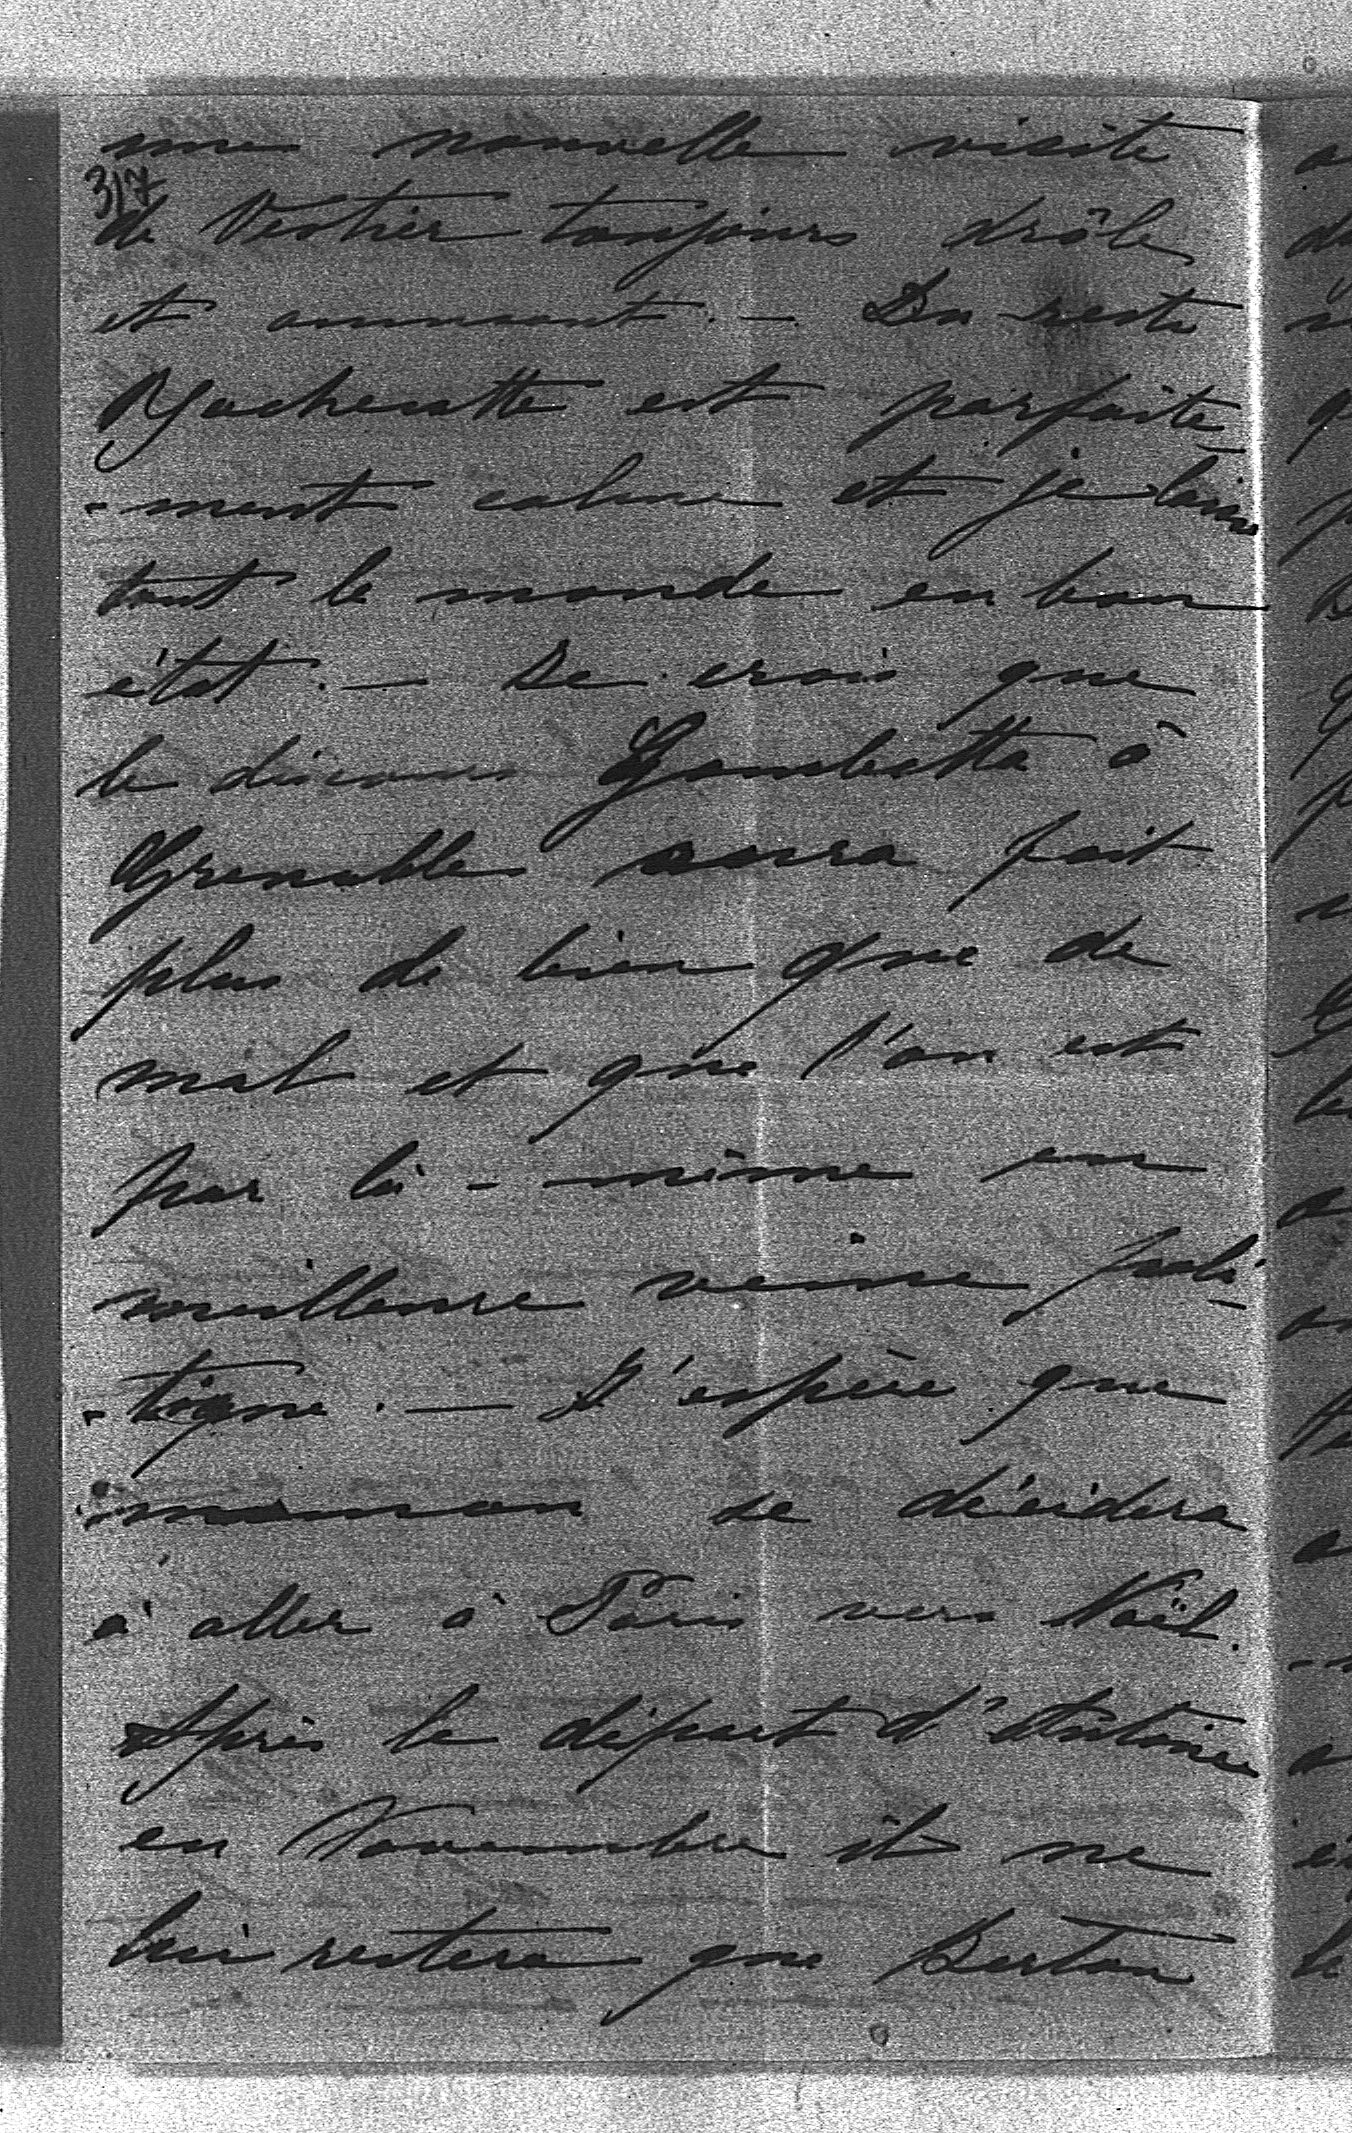 une nouvelle visite
317
de Vestier toujours drôle
et amusant. — Du reste
est parfaite
-ment calme et je laisse
tout le monde en bon
état. — Je crois que
le discours Gambetta à
Grenoble aura fait
plus de bien que de
mal et que l'on est
par là-même en
meilleure veine poli-
-tique. — J'espère que
maman se décidera
à aller à Paris vers Noël.
Après le départ d'Antoine
en Novembre il ne
lui restera que Berton